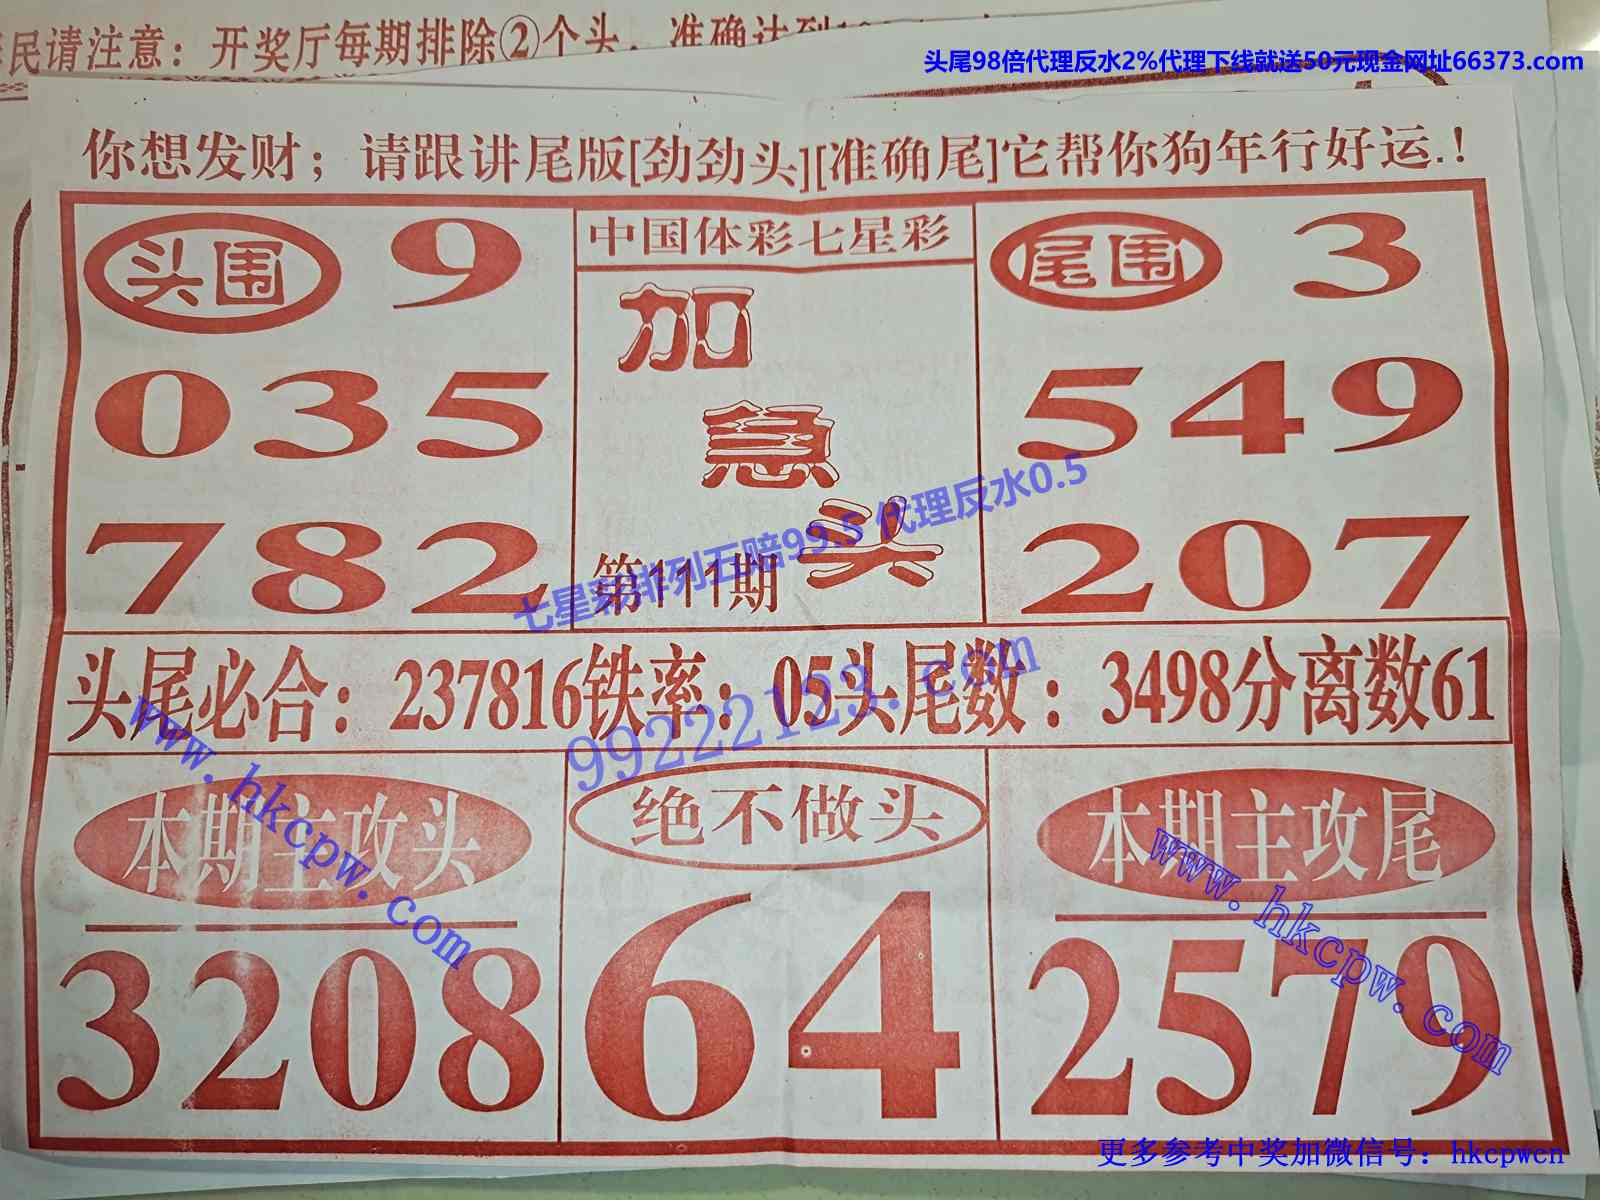 民请注意：开奖厅每期排除②个头，准确达到
头尾98倍代理反水2%代理下线就送50元现金网址66373.com
你想发财；请跟讲尾版[劲劲头][准确尾]它帮你狗年行好运.！
头围 9
035
782
中国体彩七星彩
加
急
头
第111期
尾围 3
549
207
七星彩排列五赔99.5 代理反水0.5
头尾必合：237816铁率：05头尾数：3498分离数61
99222123.com
www.hkcpw.com
本期主攻头
3208
绝不做头
64
本期主攻尾
2579
www.hkcpw.com
更多参考中奖加微信号：hkcpwcn